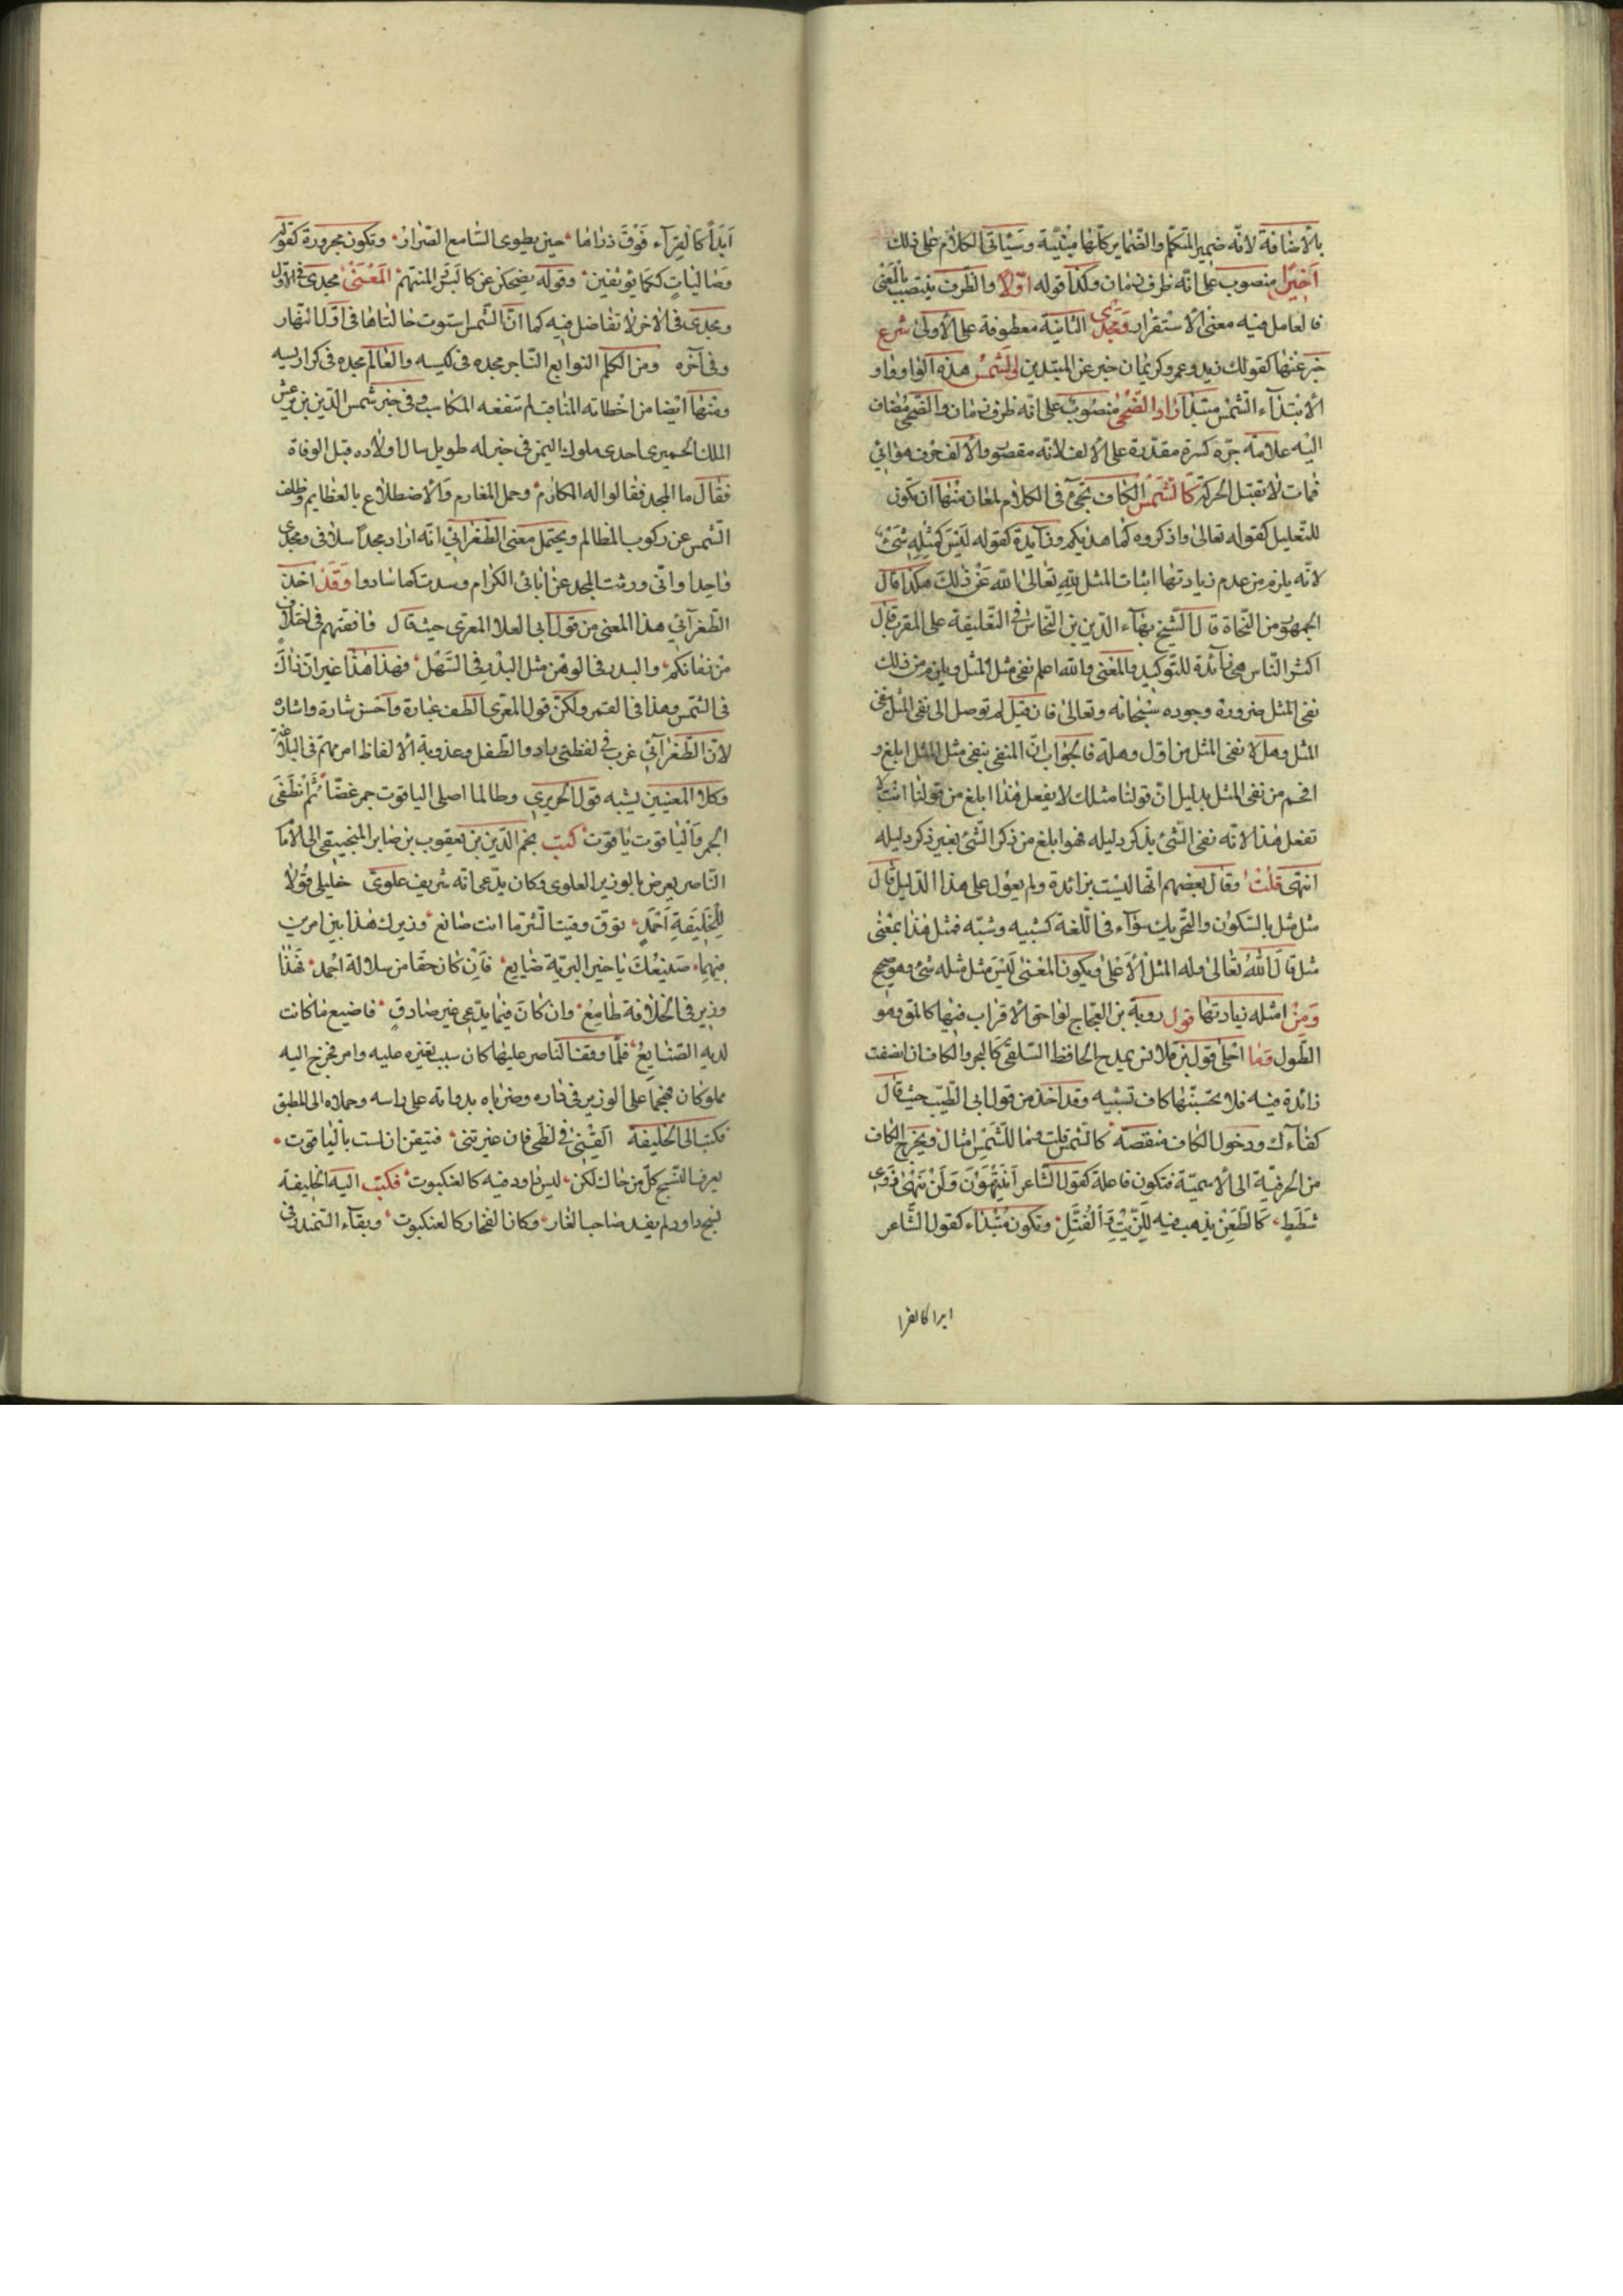 بالاضافة لانه ضمير المتكلم والضماير كلها مبنية وسيأتى الكلام على ذلك
اخيرا منصوب على انه ظرف زمان وكذا قوله اولا والظرف ينتصب بالمعنى
فالعامل فيه معنى الاستقرار ومجدى الثانية معطوفة على الاولى شرع
خبر عنها كقولك زيد وعمرو كريمان خبر عن المبتدين والشمس هذه الواو واو
الابتداء الشمس مبتدا راد الضحى منصوب على انه ظرف زمان والضحى مضاف
اليه علامة جره كسرة مقدرة على الالف لانه مقصور والالف حرف هوائي
فمات لا تقبل الحركة كالشمس الكاف تجئ فى الكلام لمعان منها ان تكون
للتعليل كقوله تعالى واذكروه كما هديكم وزايدة كقوله ليس كمثله شئ
لانه يلزم من عدم زيادتها اثبات المثل لله تعالى الله عن ذلك هكذا قال
الجمهور من النحاة قال الشيخ بهاء الدين بن النحاس فى التعليقة على المقرب قال
اكثر الناس هى زائدة للتوكيد والمعنى والله اعلم نفى مثل المثل ويلزم من ذلك
نفى المثل ضرورة وجوده سبحانه وتعالى فان قيل لم توصل الى نفى المثل بنفى
المثل وهلا نفى المثل من اول وهلة فالجواب ان المنفى بنفى مثل المثل ابلغ و
افخم من نفى المثل بدليل ان قولنا مثلك لا يفعل هذا ابلغ من قولنا انت لا
تفعل هذا لانه نفى الشئ بذكر دليله فهو ابلغ من ذكر الشئ بغير ذكر دليله
انتهى قلت وقال بعضهم انها ليست بزائدة ولم يعول على هذا الدليل قال
مثل مثل بالسكون والتحريك سواء فى اللغة كشبيه وشبه فمثل هذا بمعنى
مثل قال الله تعالى وله المثل الاعلى ويكون المعنى ليس مثل مثله شئ وهو صحيح
ومن امثله زيادتها قول روبة بن العجاج لواحق الاقراب فيها كالمقق وهو
الطول وما احلى قول بن قلاقس يمدح الحافظ السلفى كالبحر والكاف ان انصفت
زائدة فيه فلا تحسبنها كاف تشبيه وقد اخذه من قول ابى الطيب حيث قال
كفاءك ودخول الكاف منقصة كالشمس قلت وما للشمس امثال ويخرج الكاف
من الحرفية الى الاسمية فتكون فاعلة كقول الشاعر اتنتهون ولن ينهى ذوى
شطط كالطعن يذهب فيه الزيت والفتل وتكون مبتداء كقول الشاعر
ابدا كالفرا
ابدا كالفراء فوق ذراها حين يطوى المسامع الصرار وتكون مجرورة كقوله
وصاليات ككما يؤثفين وقوله يضحكن عن كالبرد المنهم المعنى مجدى فى الاول
ومجدى فى الاخر لا تفاضل فيه كما ان الشمس استوت حالتاها فى اول النهار
وفى آخره ومن الكلم النوابغ التاجر مجده فى كيسه والعالم مجده فى كراريسه
ومنها ايضا من اخطاته المناقب لم تنفعه المكاسب وفى خبر شمس الدين بن يرعش
الملك الحميرى احدى ملوك اليمن فى خبر له طويل سال اولاده قبل الوفاة
فقال ما المجد فقالوا له المكارم وحمل المغارم والاضطلاع بالعظايم وظلف
الشمس عن ركوب المظالم ويحتمل معنى الطغرائى انه اراد مجد اسلافى ومجدى
واحدا وانى ورثت المجد عن ابائى الكرام وسدت كما سادوا وقد اخذ
الطغرآئي هذا المعنى من قول ابى العلا المعرى حيث قال وافقتهم فى اختلاف
من زمانكم والبدر فى الوهن مثل البدر فى السهل فهذا هذا غير ان ذاك
فى الشمس وهذا فى القمر ولكن قول المعرى الطف عبارة واحسن شارة واشارة
لان الطغرآئى غرب فى لفظتى راد والطفل وعذوبة الالفاظ امر مهم فى البلاغة
وكلا المعنيين يشبه قول الحريرى وطالما اصلى الياقوت جمر غضا ثم انطفى
الجمر والياقوت ياقوت كتب نجم الدين بن يعقوب بن صابر المنجنيقى الى الاما
الناصر يعرض بالوزير العلوى وكان يدعى انه شريف علوى خليلى قولا
للخليفة احمد توق وقيت الشر ما انت صانع وزيرك هذا بين امرين
فيهما صنيعك يا خير البرية ضايع فان كان حقا من سلالة احمد فهذا
وزير فى الخلافة طامع وان كان فيما يدعى غير صادق فاضيع ما كانت
لديه الصنايع فلما وقف الناصر عليها كان سبب تغيره عليه وامر فخرج اليه
مملوكان فهجما على الوزير فى داره وضرباه بدواته على راسه وحملاه الى المطبق
فكتب الى الخليفة القنى فى لظى فان غيرتنى فتيقن ان لست بالياقوت
يعرف النسج كل من حاك لكن ليس داود فيه كالعنكبوت فكتب اليه الخليفة
نسج داود لم يفد صاحب الغار وكان الفخار كالعنكبوت وبقآء السمند فى